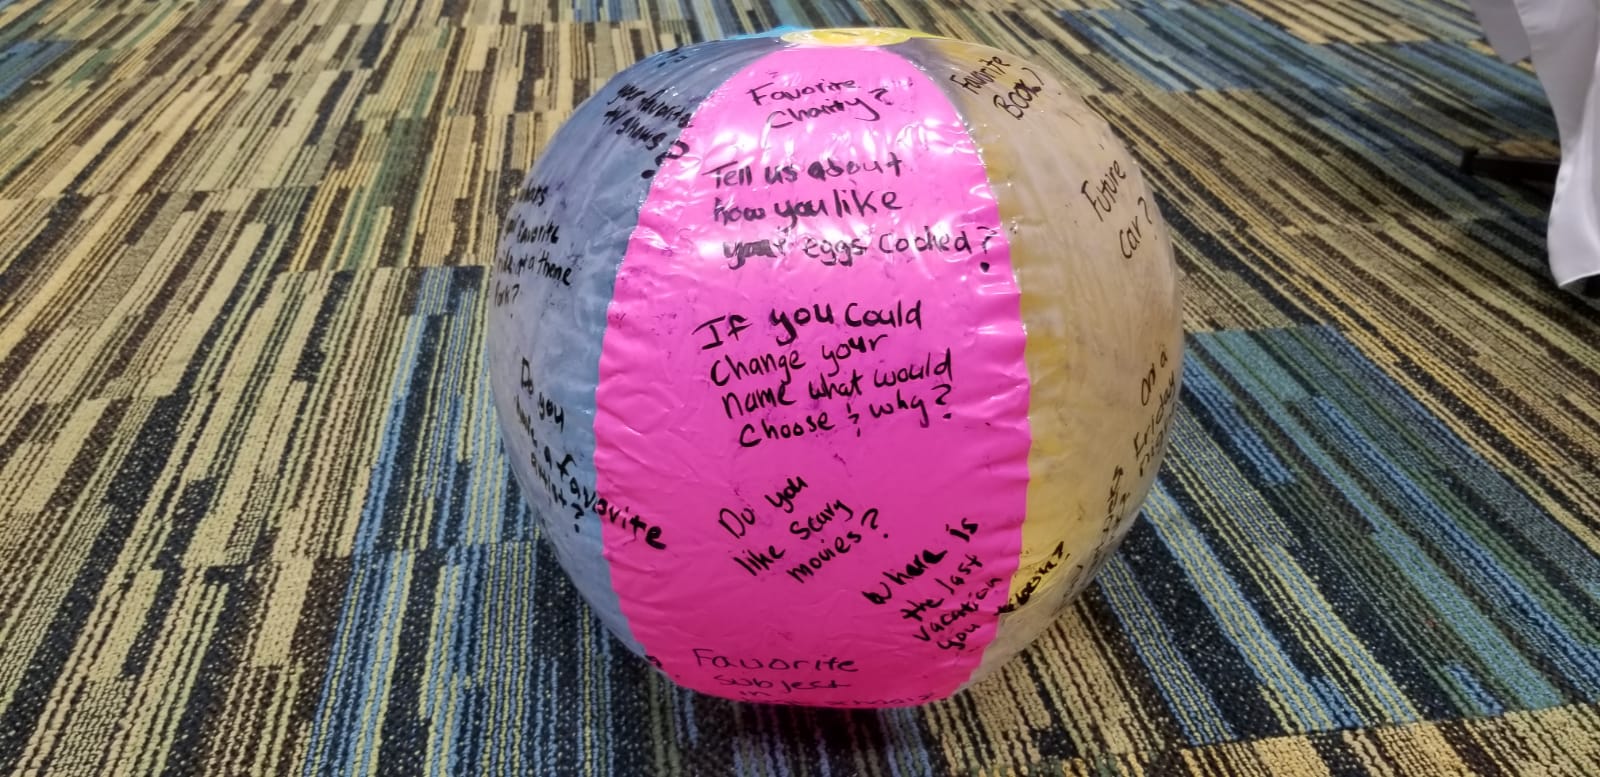 your favorite
tv shows?
favorite
ride at a theme
Park?
Do you
have a favorite
artist?
Favorite
Charity?
Tell us about
how you like
your eggs cooked?
If you Could
Change your
name what would
Choose? why?
Do you
like scary
movies?
where is
the last
vacation
you
Favorite
subject
in
Favorite
Book?
Future
car?
On a
Friday
night